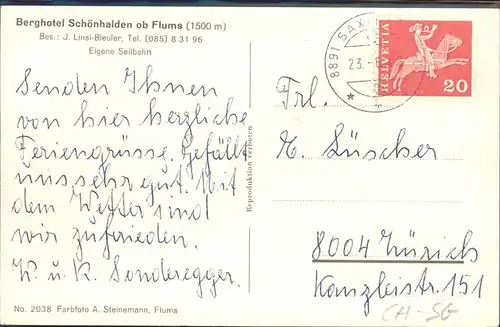 Berghotel Schönhalden ob Flums (1500 m)
Bes.: J. Linsi-Bleuler, Tel. (085) 8 31 96
Eigene Seilbahn
Senden Ihnen
von hier herzliche
Feriengrüsse. Gefällt
uns sehr gut. Mit
dem Wetter sind
wir zufrieden.
W. u. K. Sonderegger.
No. 2038 Farbfoto A. Steinemann, Flums
Reproduktion verboten
8891 SAX
23.
HELVETIA
20
Frl.
E. Lüscher
8004 Zürich
Kanzleistr. 151
CH-SG